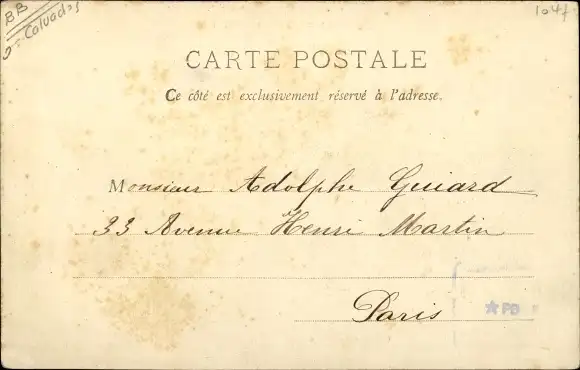 BB
Calvados
104f
CARTE POSTALE
Ce côté est exclusivement réservé à l'adresse.
Monsieur Adolphe Guiard
33 Avenue Henri Martin
Paris